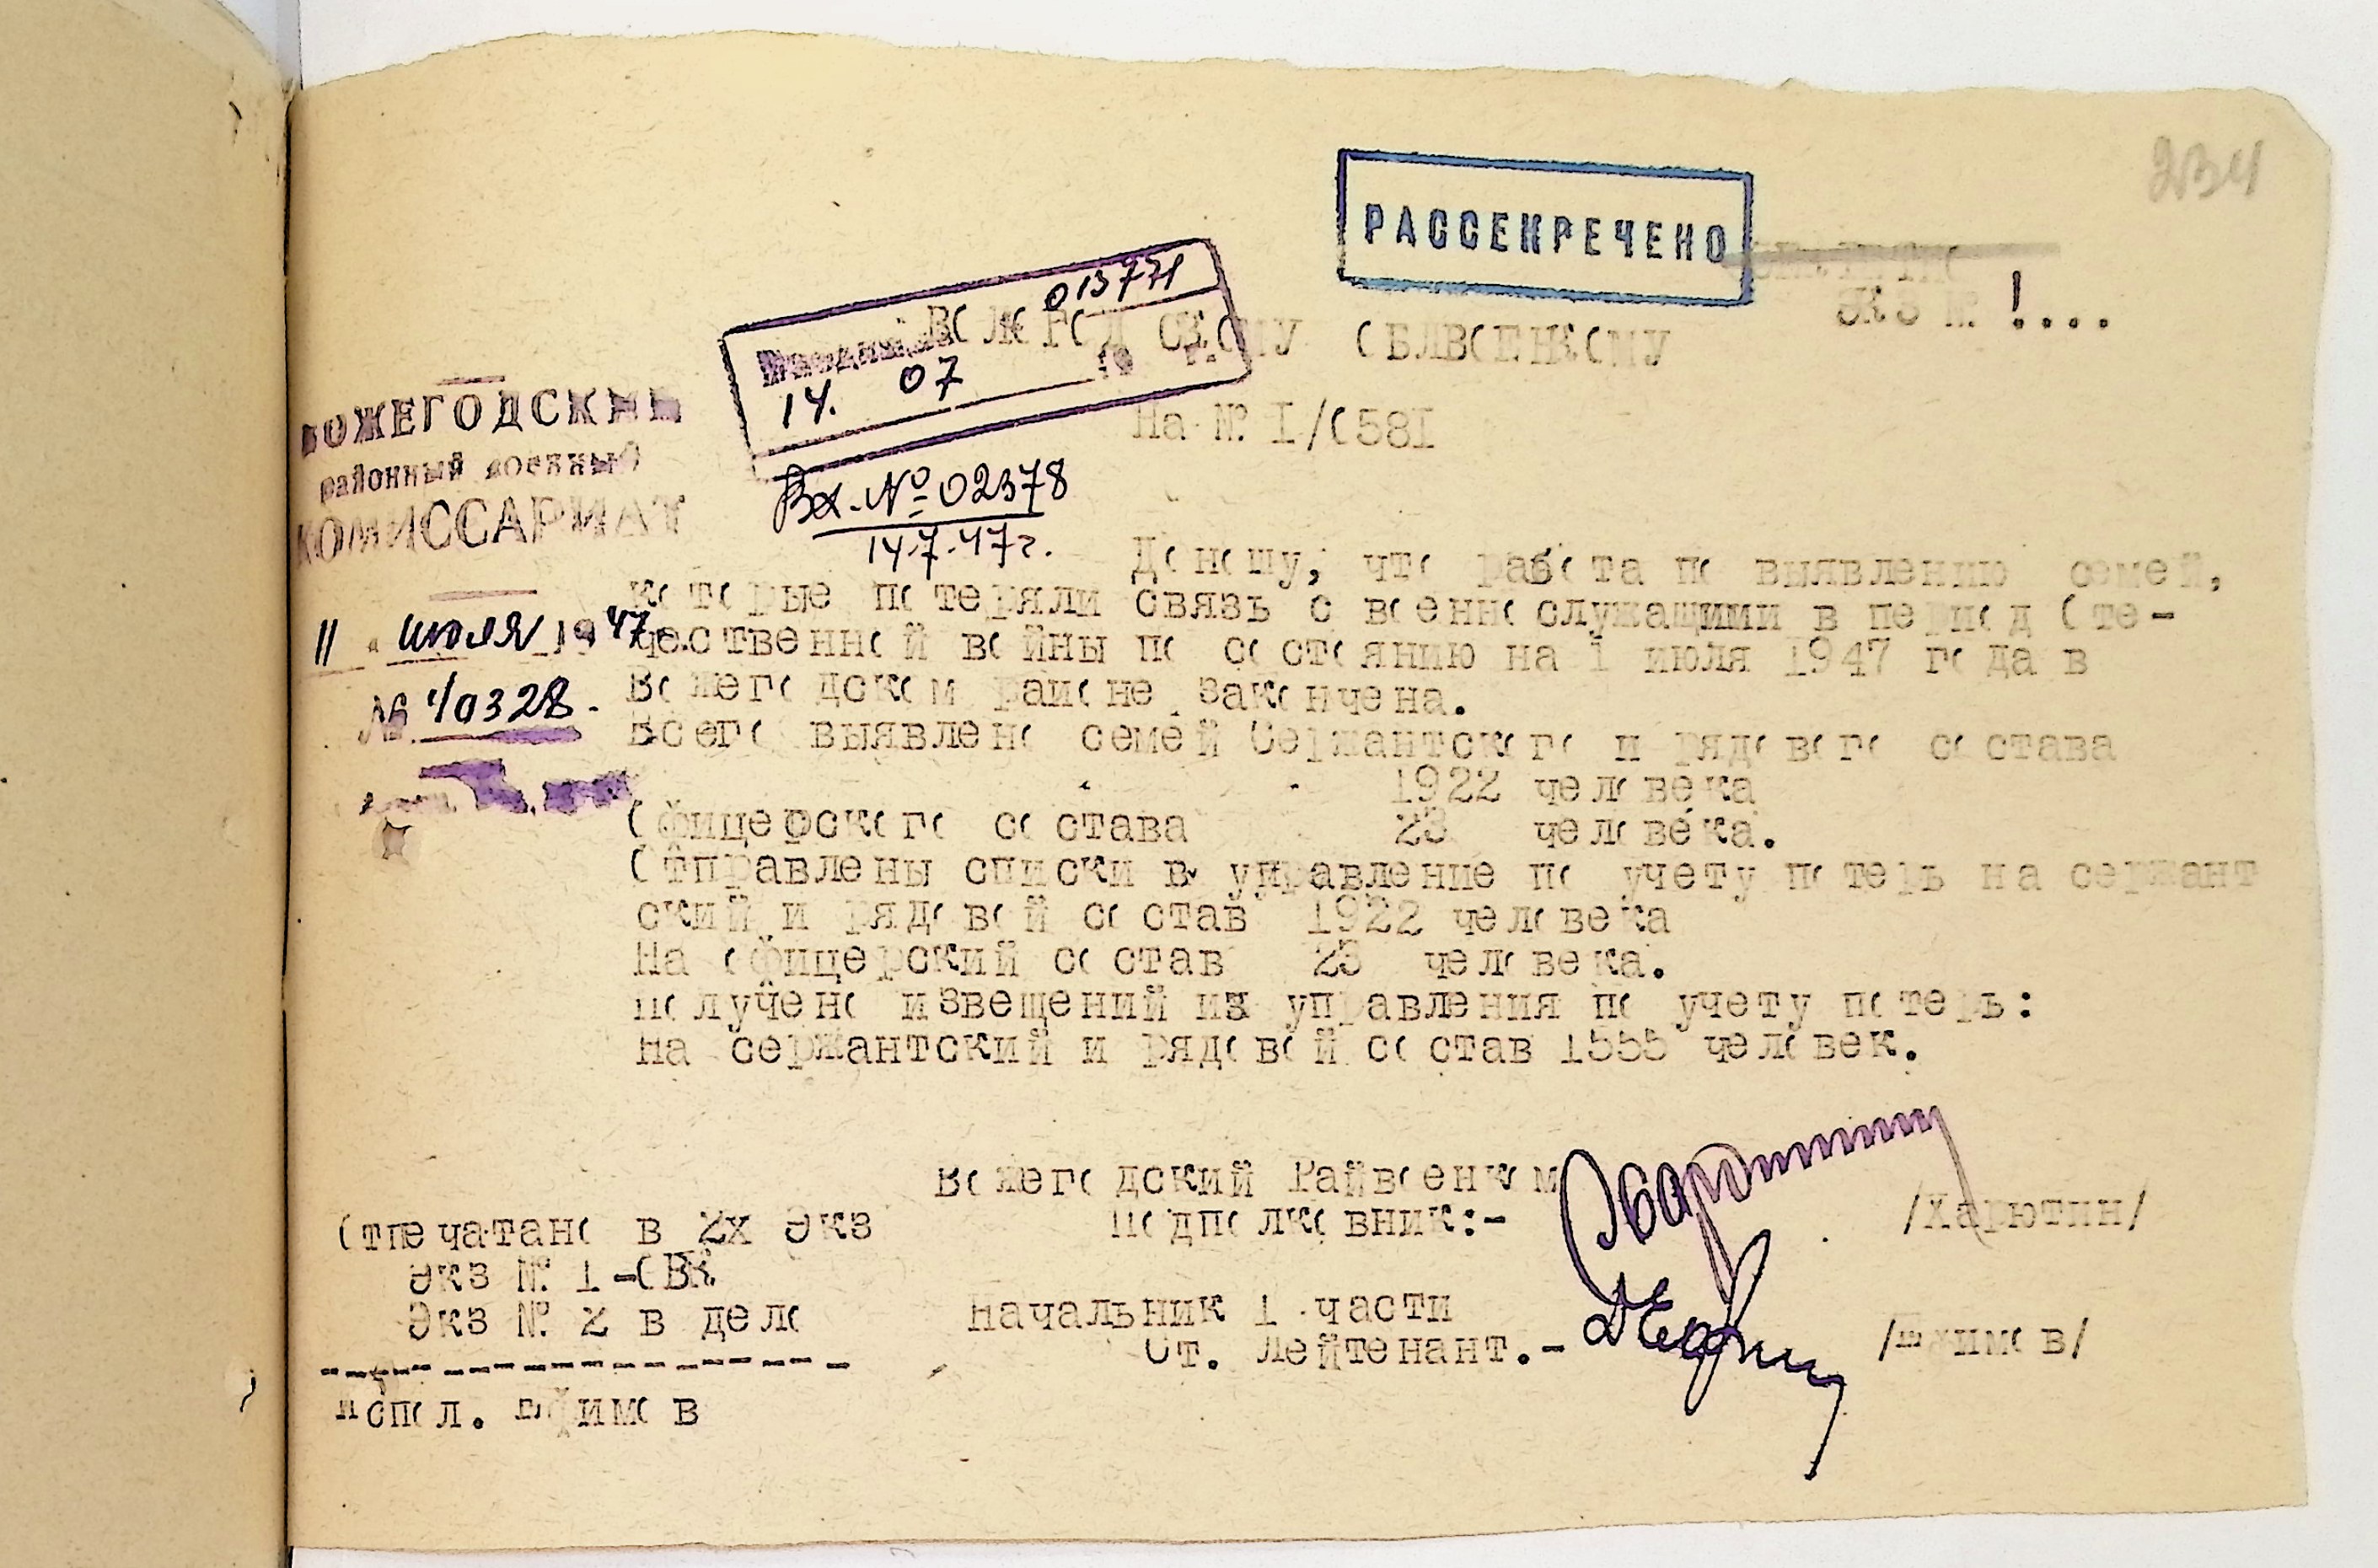 234
РАССЕКРЕЧЕНО
Экз № 1....
013771
ВОЛОГОДСКОМУ ОБЛВОЕНКОМУ
14. 07 19 г.
На № I/058I
Вх. № 02378
14.7.47г.
ВОЖЕГОДСКИЙ
районный военный
КОМИССАРИАТ
11 " июля 1947г.
№ 40328.
Доношу, что работа по выявлению семей,
которые потеряли связь с военнослужащими в период Оте-
чественной войны по состоянию на 1 июля 1947 года в
Вожегодском районе закончена.
Всего выявлено семей Сержантского и рядового состава
1922 человека
Офицерского состава 23 человека.
Отправлены списки в управление по учету потерь на сержант
ский и рядовой состав 1922 человека
На офицерский состав 23 человека.
Получено извещений из управления по учету потерь:
На сержантский и рядовой состав 1555 человек.
Вожегодский Райвоенком
Подполковник:- /Харютин/
Начальник 1 части
Ст. Лейтенант.- /Ефимов/
Отпечатано в 2х Экз
Экз № 1-ОВК
Экз № 2 в дело
Испол. Ефимов